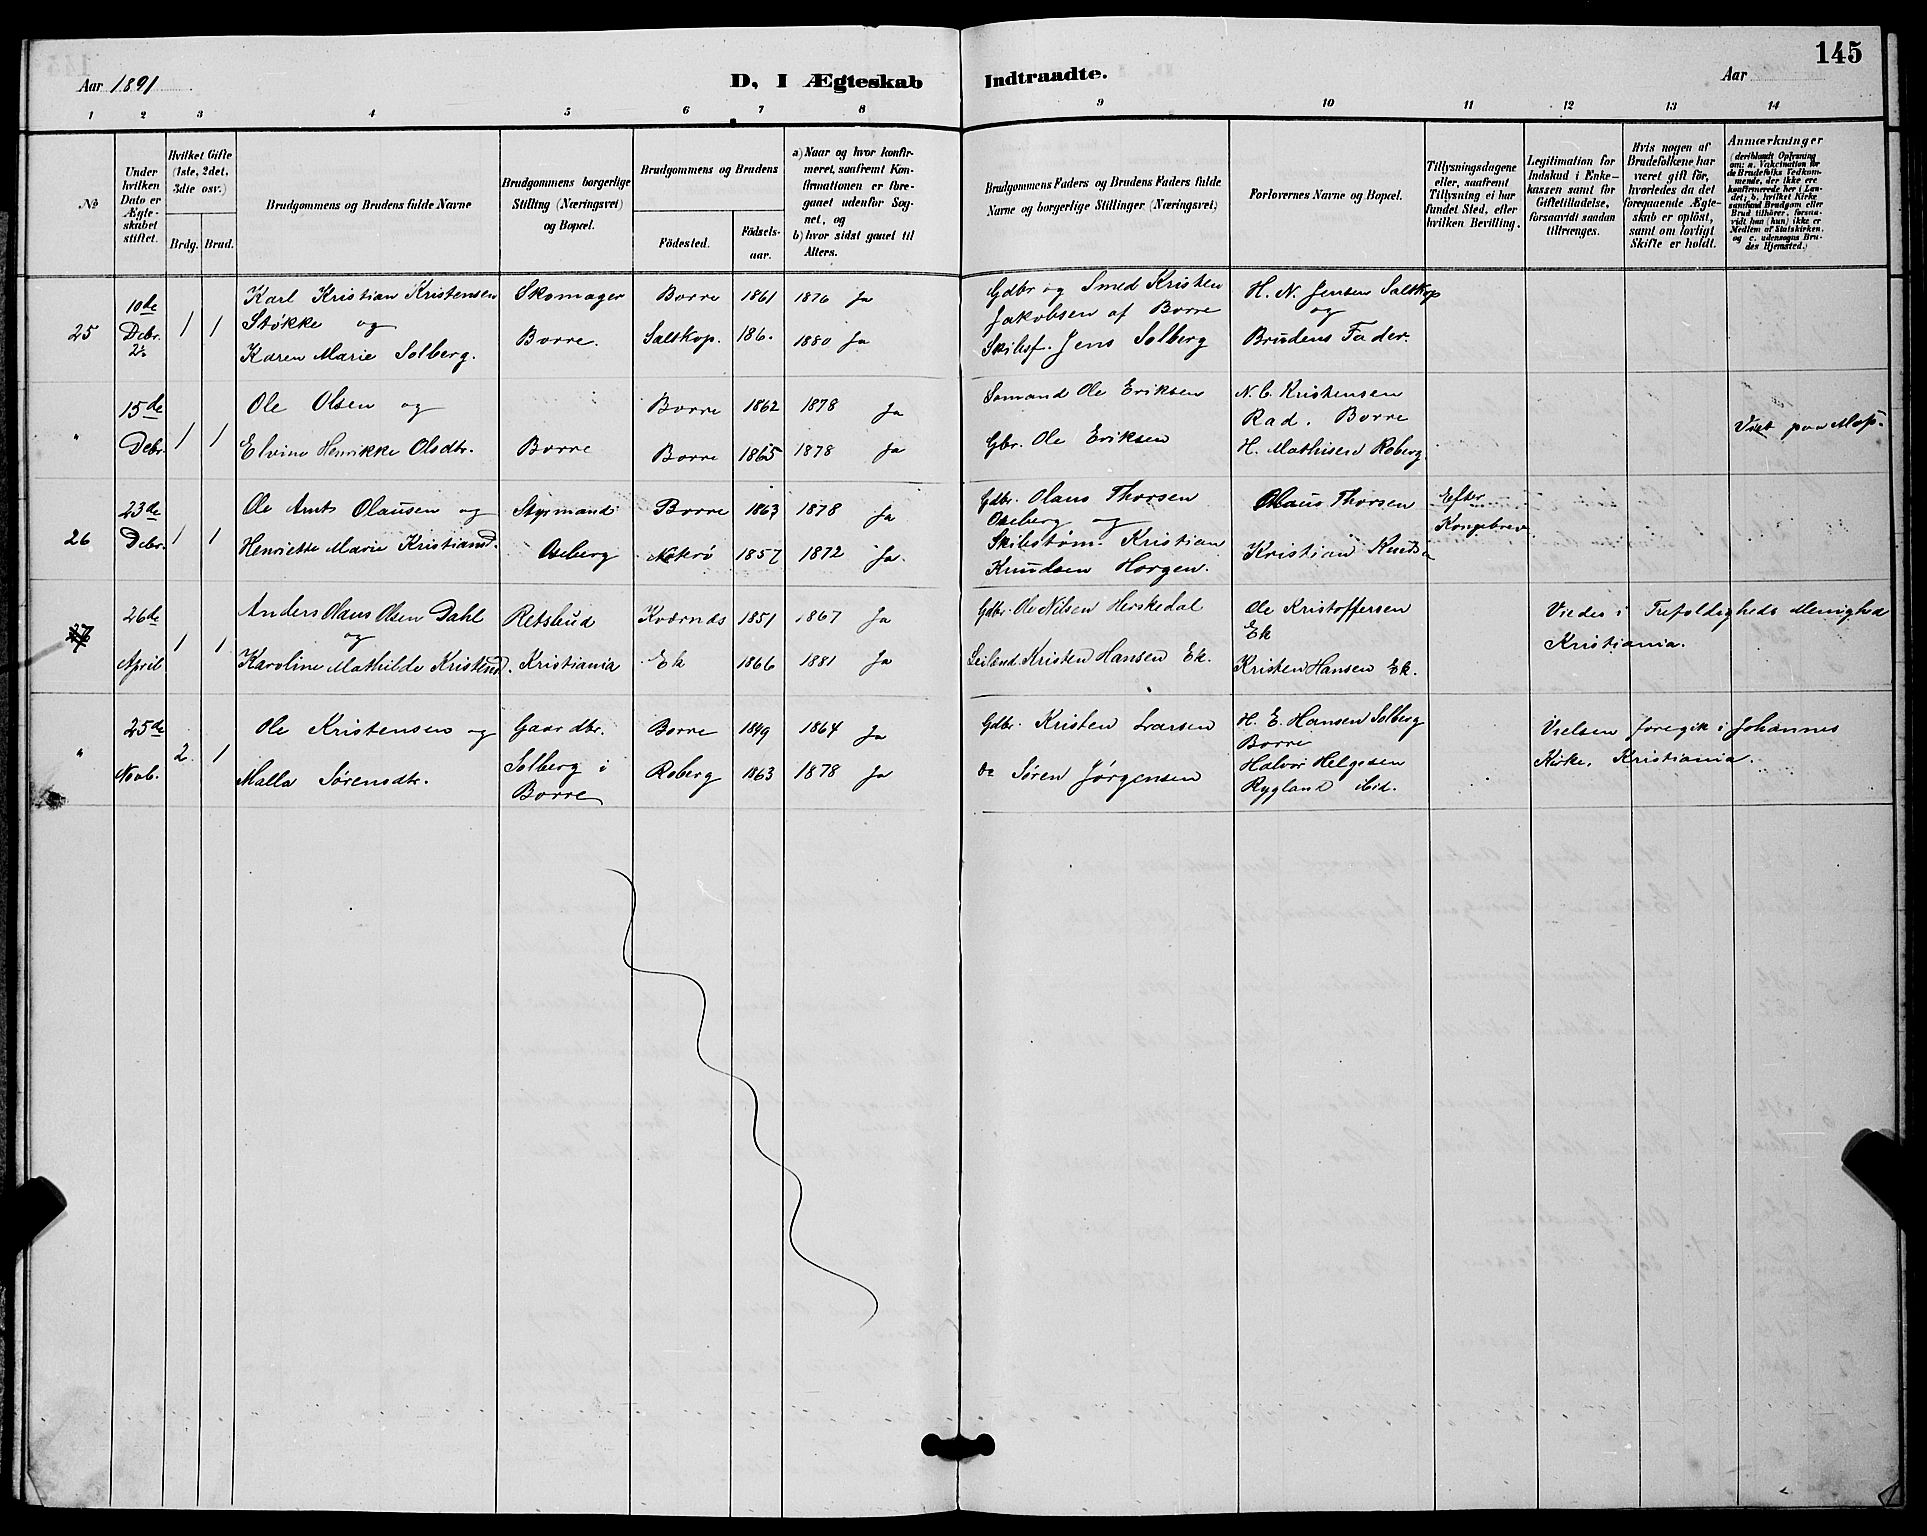 145
Aar 1891
D, I Ægteskab
Indtraadte.
Aar
1 2 3 4 5 6 7 8 9 10 11 12 13 14
No
Under
hvilken
Dato er
Ægte-
skabet
stiftet.
Hvilket Gifte
(1ste, 2det,
3die osv.)
Brdg. Brud.
Brudgommens og Brudens fulde Navne
Brudgommens borgerlige
Stilling (Næringsvei)
og Bopæl.
Brudgommens og Brudens
Fødested.
Fødsels-
aar.
a) Naar og hvor konfir-
meret, saafremt Kon-
firmationen er fore-
gaaet udenfor Sog-
net, og
b) hvor sidst gaaet til
Alters.
Brudgommens Faders og Brudens Faders fulde
Navne og borgerlige Stillinger (Næringsvei)
Forlovernes Navne og Bopæl.
Tillysningsdagene
eller, saafremt
Tillysning ei har
fundet Sted, efter
hvilken Bevilling.
Legitimation for
Indskud i Enke-
kassen samt for
Giftetilladelse,
forsaavidt saadan
tiltrænges.
Hvis nogen af
Brudefolkene har
været gift før,
hvorledes da det
foregaaende Ægte-
skab er opløst,
samt om lovligt
Skifte er holdt.
Anmærkninger
(deriblandt Oplysning
om: a. Vakcination for
de Brudefolks Vedkom-
mende, der ikke ere
konfirmerede her i Lan-
det; b. hvilket Kirke
samfund Brudgom eller
Brud tilhører, forsaa-
vidt han (hun) ikke er
Medlem af Statskirken,
og c. udensogns Bru-
des Hjemsted.)
25
10de
Debr.
1 1
Karl Kristian Kristensen
Støkke og
Karen Marie Solberg.
Skomager
Borre.
Borre 1861 1876 Ja
Saltkop. 186. 1880 Ja
Gdbr og Smed Kristen
Jakobsen af Borre
Skibsf. Jens Solberg
H. N. Jensen Saltkop
og
Brudens Fader.
"
15de
Debr.
1 1
Ole Olsen og
Elvine Henrikke Olsdtr.
Borre
Borre 1862 1878 Ja
Borre 1865 1878 Ja
Sømand Ole Eriksen
Gbr. Ole Eriksen
N. C. Kristensen
Rad. Borre
H. Mathisen Roberg.
Viet paa
26
23de
Debr.
1 1
Ole Olausen og
Henriette Marie Kristiansd.
Styrmand
Oseberg
Borre 1863 1878 Ja
Nøtrø 1857 1872 Ja.
Gdbr. Olaus Thorsen
Oseberg og
Skibstøm. Kristian
Knudsen Horgen.
Olaus Thorsen
Kristian
Efter
Kongebrev
27
26de
April
1 1
Anders Olaus Olsen Dahl
og
Karoline Mathilde Kristensd.
Retsbud
Kristiania
Kværnes 1851 1867 Ja
Ek 1866 1881 Ja
Gdbr. Ole Nilsen Herskedal
Leilend. Kristen Hansen Ek.
Ole Kristoffersen
Ek
Kristen Hansen Ek.
Viedes i Trefoldigheds Menighed
Kristiania.
"
25de
Novb.
2 1
Ole Kristensen og
Malla Sørensdtr.
Gaardbr.
Solberg i
Borre
Borre 1849 1864 Ja
Roberg 1863 1878 Ja
Gdbr. Kristen Larsen
Do Søren Jørgensen
H. E. Hansen Solberg
Borre
Halvor Helgesen
Rygland ibid.
Vielsen foregik i Johannes
Kirke, Kristiania.